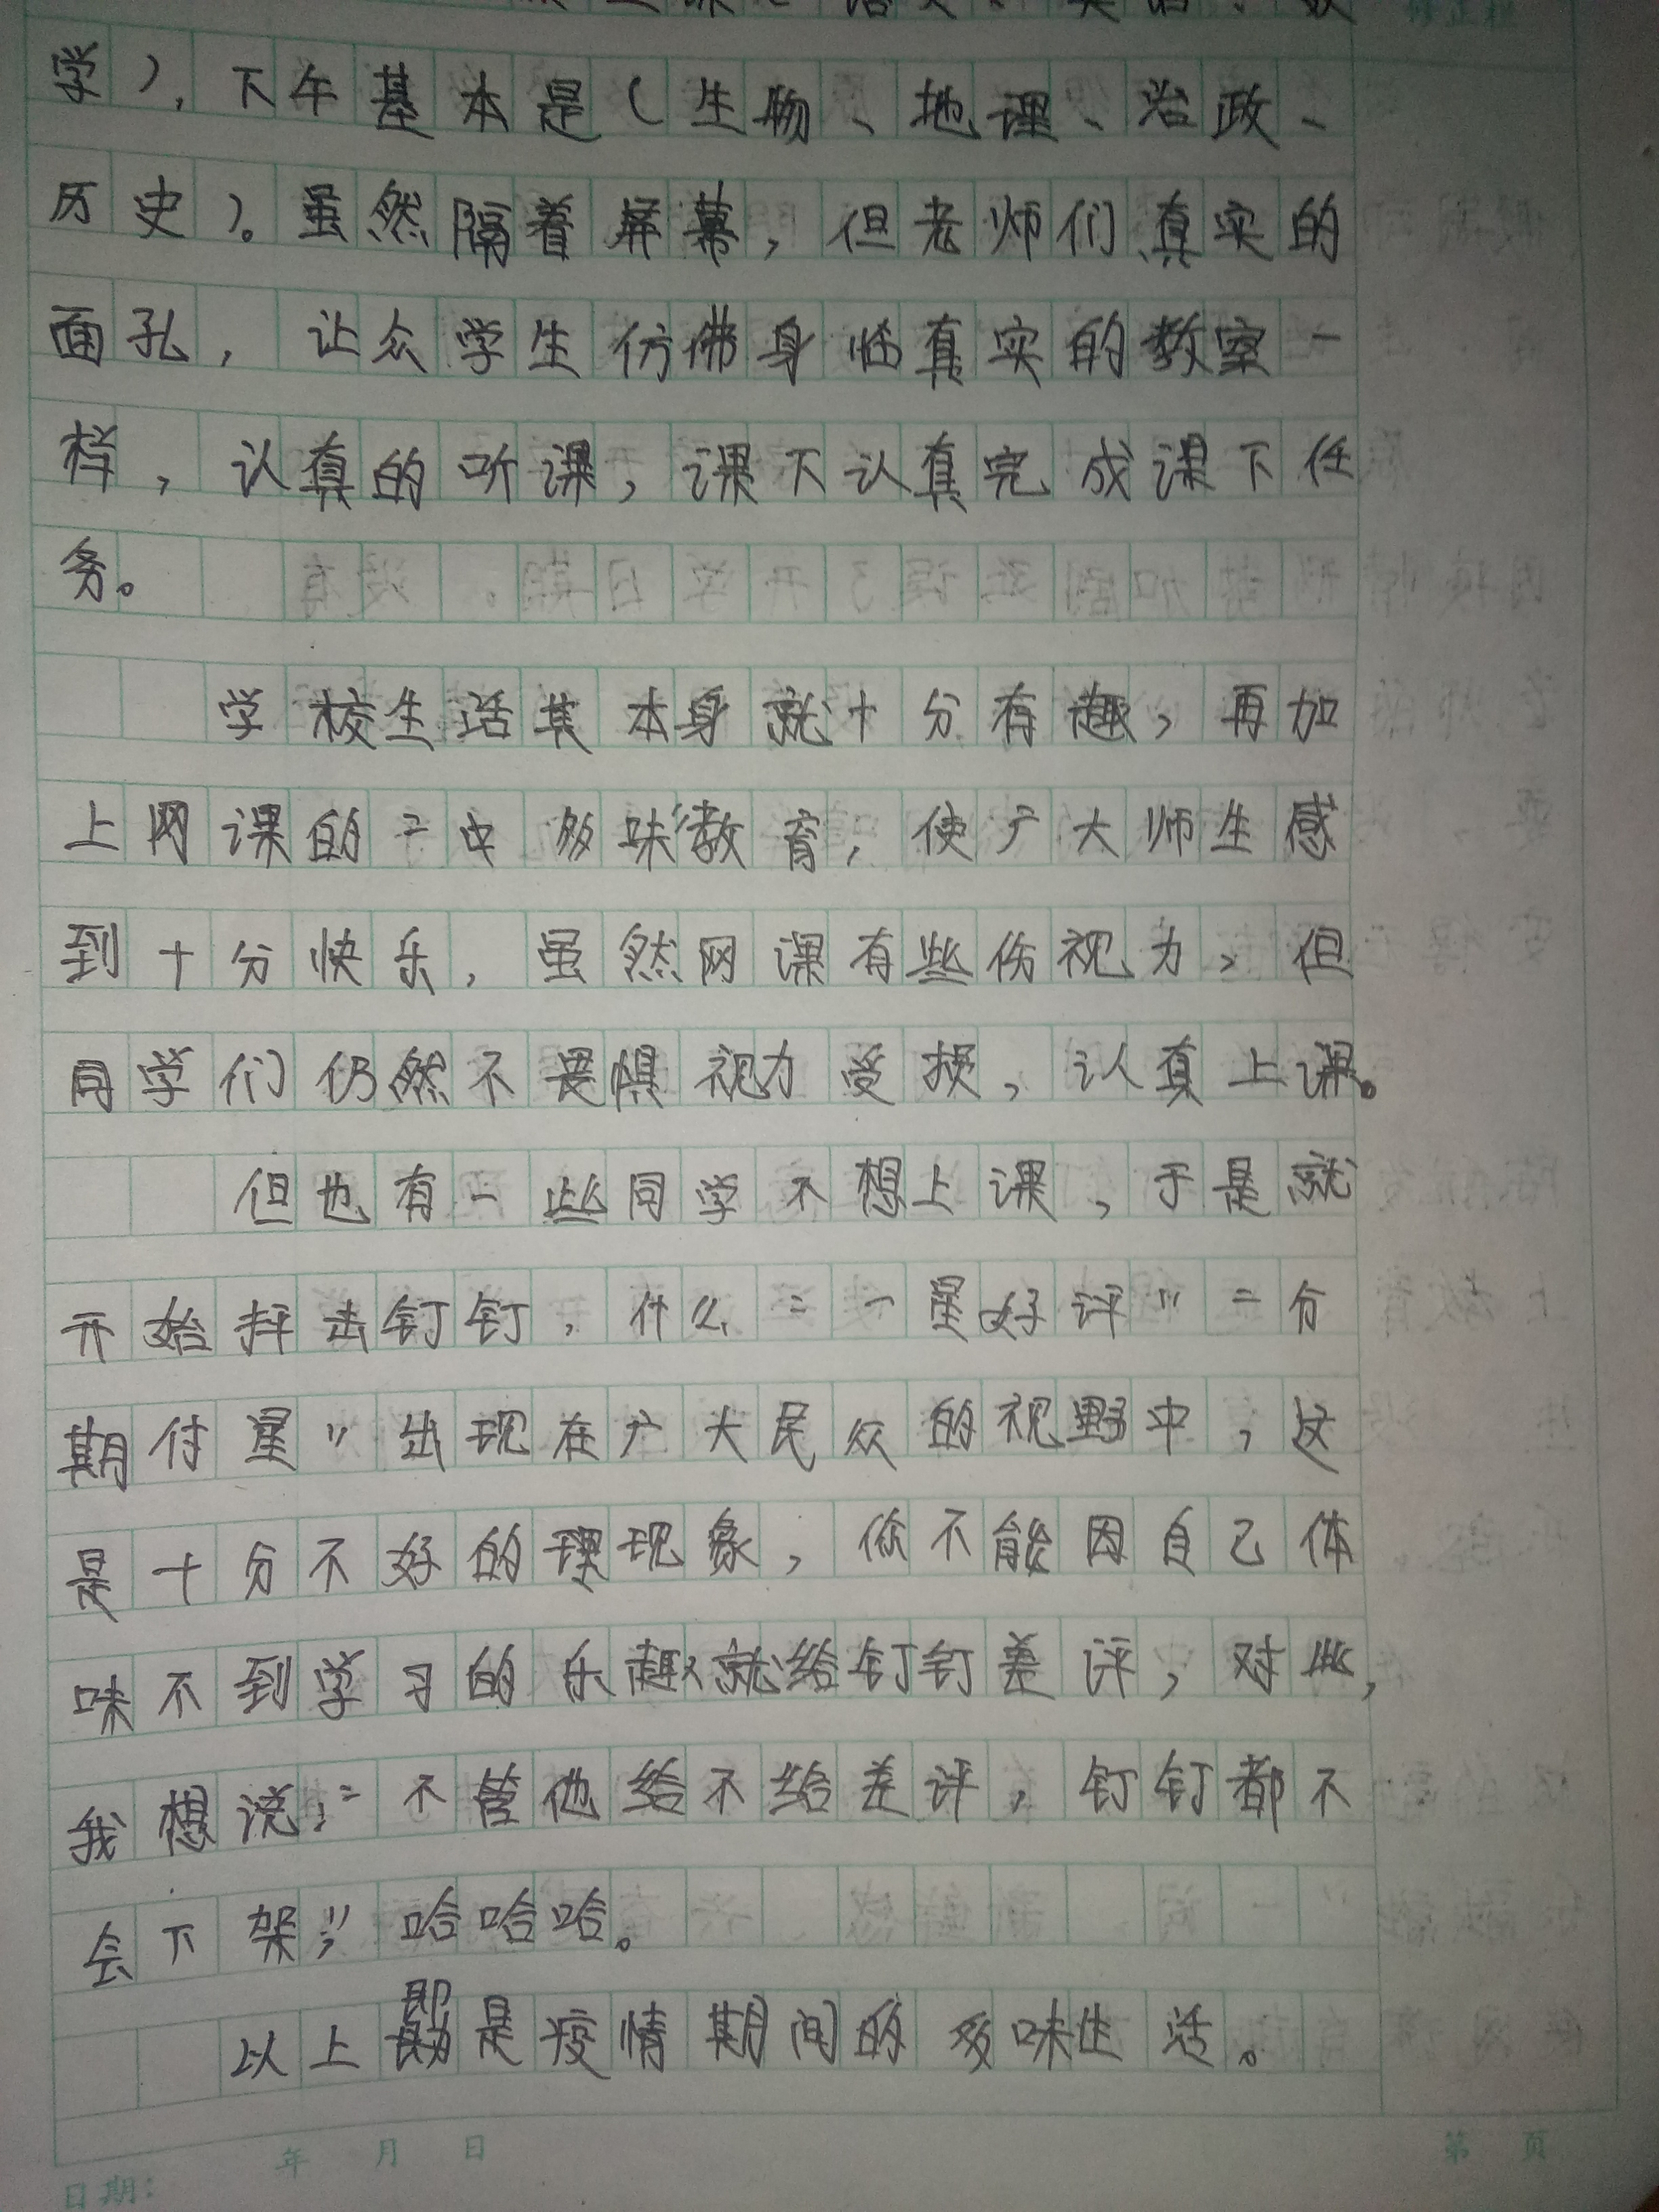 学），下午基本是（生物、地理、治政、
历史）。虽然隔着屏幕，但老师们真实的
面孔，让众学生仿佛身临真实的教室一
样，认真的听课，课下认真完成课下任
务。
学校生活其本身就十分有趣，再加
上网课的“中多味”教育，使广大师生感
到十分快乐，虽然网课有些伤视力，但
同学们仍然不畏惧视力受损，认真上课。
但也有一些同学不想上课，于是就
开始抨击钉钉，什么“一星好评”“分
期付星”出现在广大民众的视野中，这
是十分不好的现象，你不能因自己体
味不到学习的乐趣就给钉钉差评，对此，
我想说：“不管他给不给差评，钉钉都不
会下架！”哈哈哈。
以上即是疫情期间的多味生活。
日期： 年 月 日
第 页